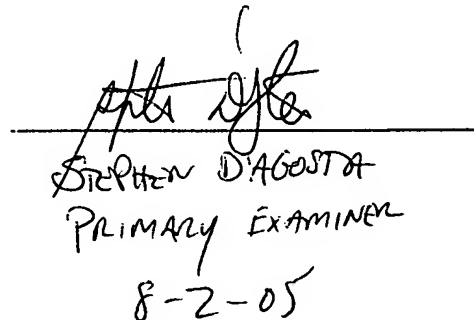 STEPHEN D'AGOSTA
PRIMARY EXAMINER
8-2-05